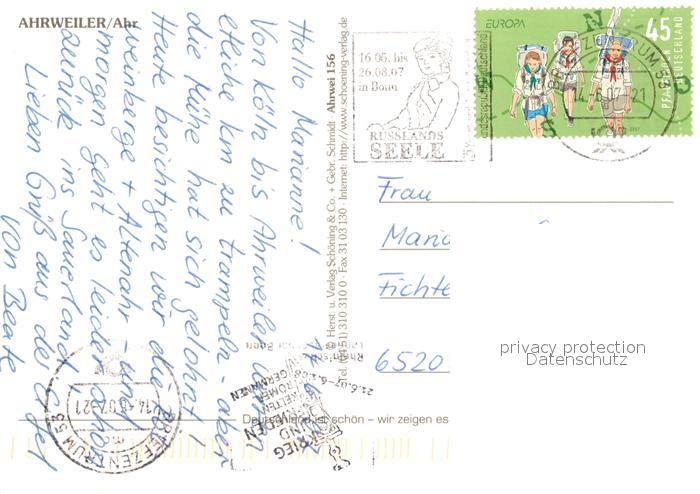 AHRWEILER/Ahr
Hallo Marianne!
Von Köln bis Ahrweiler
etliche km zu trampeln - aber
die Mühe hat sich gelohnt!
Heute besichtigen wir die
Weinberge + Altenahr - und
morgen geht es leider schon
zurück ins Sauerland.
Lieben Gruß aus de
von Beate
© Herst. u. Verlag Schöning & Co. + Gebr. Schmidt · Ahrwei 156
Tel. (0451) 310 310 0 · Fax 31 03 130 · Internet: http://www.schoening-verlag.de
16.05. bis
26.08.07
in Bonn
RUSSLANDS
SEELE
EUROPA
45
DEUTSCHLAND
BRIEFZENTRUM 53
14.6.07-21
Frau
Maria
Fichte
6520
privacy protection
Datenschutz
KRIEG
UND
FRIEDEN
KELTEN
RÖMER
GERMANEN
BRIEFZENTRUM 53
14.6.07-21
Deutschland ist schön – wir zeigen es